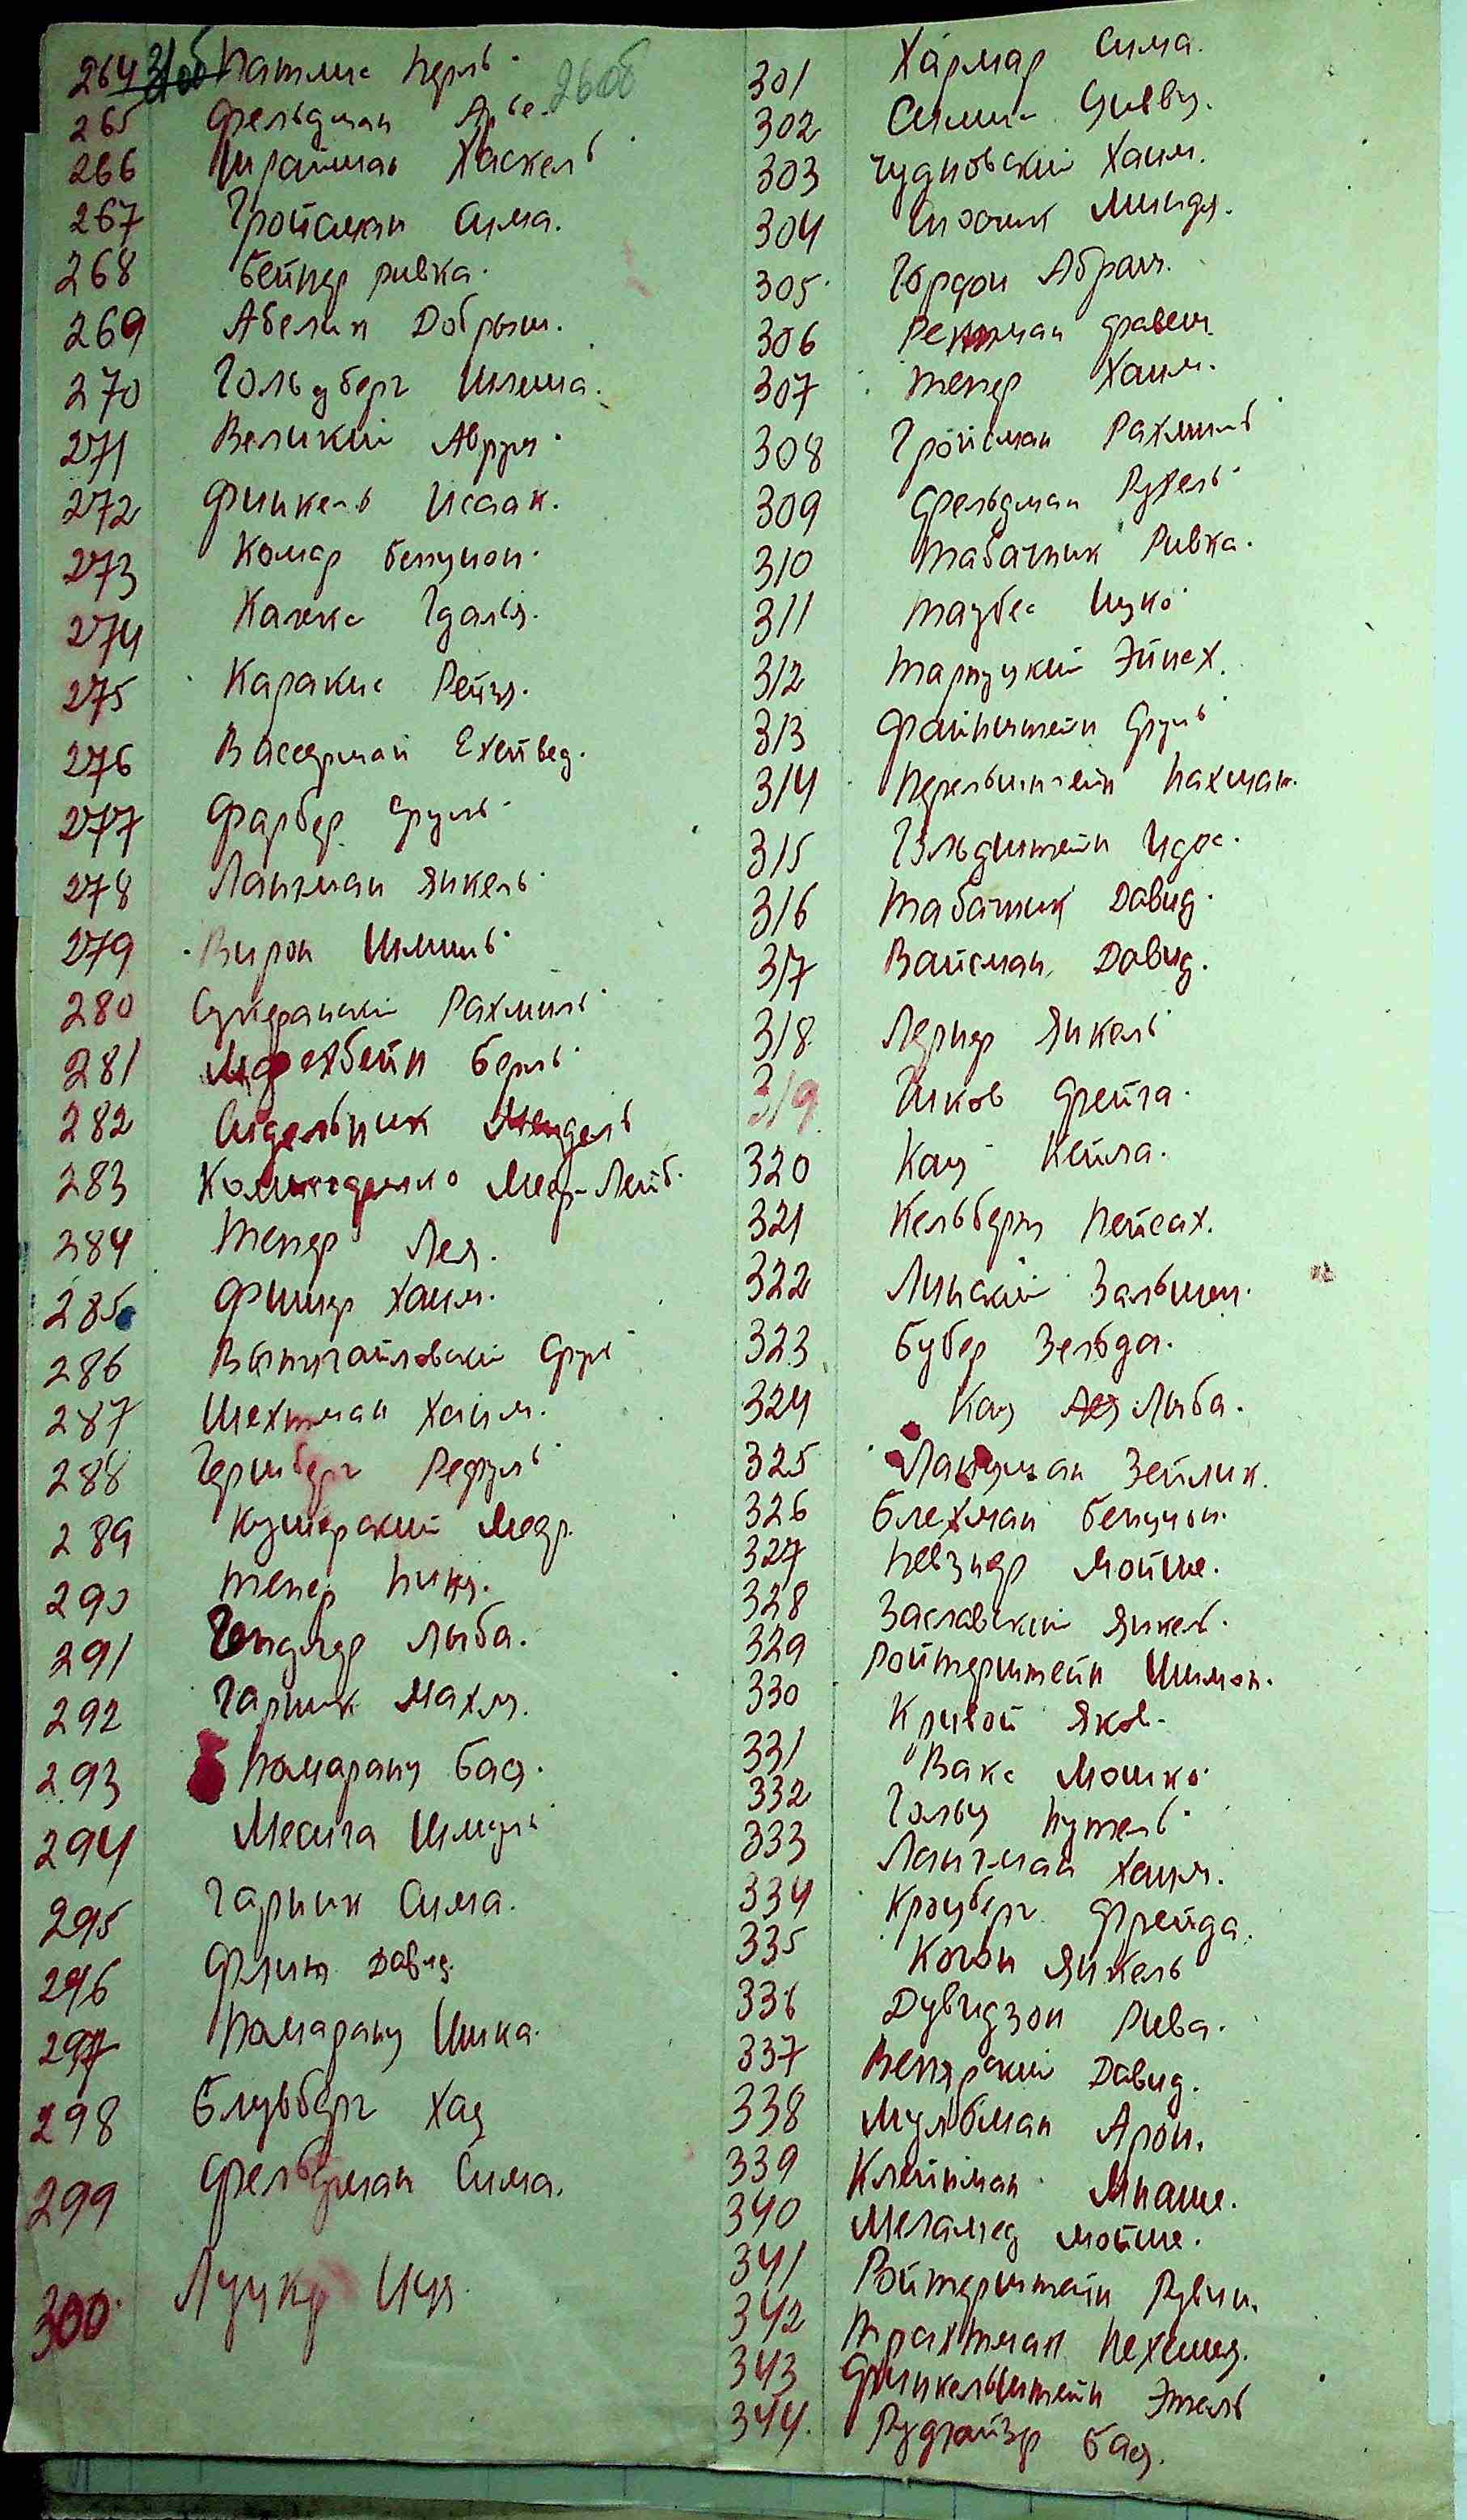 264 Натлис Нерль
265 Фельдман Арье
266 Шрайман Хаскель
267 Гройсман Сима.
268 Бейнер Ривка.
269 Абелин Добрыш.
270 Гольдберг Шлема.
271 Великий Аврум
272 Финкель Исаак.
273 Комар Бенцион.
274 Калека Гдалья.
275 Каракис Рейзя.
276 Вассерман Ехевед.
277 Фарбер Сруль
278 Лангман Янкель
279 Вирон Шмиль
280 Сукеранский Рахмиль
281 Берль
282 Сидельник Мендель
283 Меер-Лейб.
284 Тепер Лея.
285 Фишер Хаим.
286 Сруль
287 Шехтман Хаим.
288 Гершберг Рефуль
289 Кушерский Меер.
290 Тепер
291 Гендлер Лыба.
292 Гарник Махля.
293 Померанц Бася.
294 Месига Шмуль
295 Гарник Сима.
296 Флит Давид.
297 Померанц Шика.
298 Блувберг Хая
299 Фельдман Сима.
300 Луцкер Иця
301 Хармар Сима.
302
303 Чудновский Хаим.
304 Миндя.
305 Гордон Абрам.
306
307 Тепер Хаим.
308 Гройсман Рахмиль
309 Фельдман Рухель
310 Табачник Ривка.
311 Таубес Ицко
312 Тарлуцкий Эйнех.
313 Файнштейн Сруль
314 Перельштейн Нахман.
315 Гольдштейн Идес.
316 Табачник Давид.
317 Вайсман Давид.
318 Лернер Янкель
319 Ицков Фрейга.
320 Кац Кейла.
321 Кельберт Пейсах.
322 Линский Зальмен.
323 Бубер Зельда.
324 Кац Лыба.
325 Ланцман Зейлик.
326 Блехман Бенцион.
327 Певзнер Мойше.
328 Заславский Янкель.
329 Ройтерштейн Шимон.
330 Кривой Яков.
331 Вакс Мошко
332 Гольц Нутель
333 Лангман Хаим.
334 Крауберг Фрейда.
335 Когон Янкель
336 Дувидзон Рива.
337 Венярский Давид.
338 Мульбман Арон.
339 Клейнман Мнаше.
340 Меламед Мойше.
341 Ройтерштейн Рувин.
342 Трахтман Нехемя.
343 Финкельштейн Этель
344. Рудгайзер Бася.